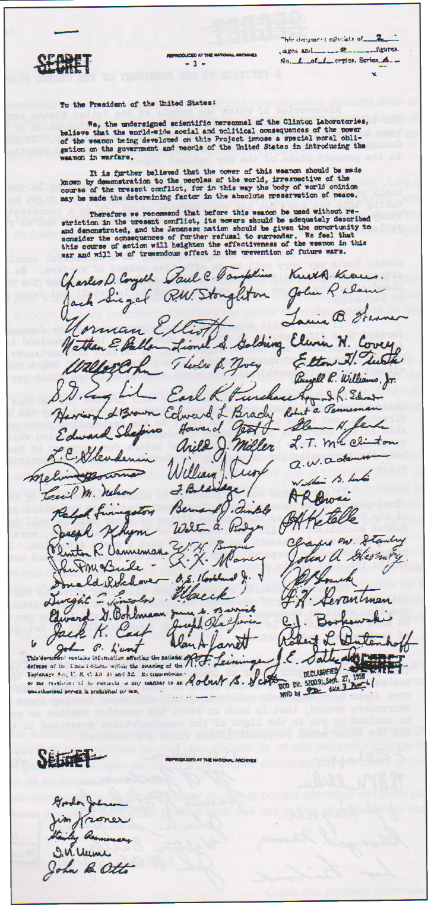 This document consists of 2
pages and 0 figures.
No. 1 of 1 copies. Series A
SECRET
REPRODUCED AT THE NATIONAL ARCHIVES
- 1 -
To the President of the United States:
We, the undersigned scientific personnel of the Clinton Laboratories,
believe that the world-wide social and political consequences of the power
of the weapon being developed on this Project impose a special moral obli-
gation on the government and people of the United States in introducing the
weapon in warfare.
It is further believed that the power of this weapon should be made
known by demonstration to the peoples of the world, irrespective of the
course of the present conflict, for in this way the body of world opinion
may be made the determining factor in the absolute preservation of peace.
Therefore we recommend that before this weapon be used without re-
striction in the present conflict, its powers should be adequately described
and demonstrated, and the Japanese nation should be given the opportunity to
consider the consequences of further refusal to surrender. We feel that
this course of action will heighten the effectiveness of the weapon in this
war and will be of tremendous effect in the prevention of future wars.
Charles D. Coryell Paul C. Tompkins Kurt A. Kraus
Jack Siegel P.W. Stoughton John R. Dam
Norman Elliott Louis B.
Nathan E. Ballou Lionel S. Goldring Elwin H. Covey
Waldo Cohn Theodore B. Novey Elton H. Turk
Russell R. Williams, Jr.
Earl K. Purchase
Harrison S. Brown Edward L. Brady Robert A. Penneman
Edward Shapiro Howard Gest
L.E. Glendenin Arild J. Miller L.T. McClinton
A.W. Adamson
Cecil M. Nelson
Ralph Livingston Bernard J. Finkle A.R. Brosi
Joseph Khym B.H. Ketelle
Clinton R. Vanneman Chapin W. Stanley
John P. McBride
Donald S. Schover
Dwight C. Lincoln
Edward G. Bohlmann James S. C.J. Borkowski
Jack K. East Joseph Halperin Robert L. Butenhoff
John P. Hunt Alan Jarrett J.E.
This document contains information affecting the national R.F. Leininger
defense of the United States within the meaning of the
Espionage Act, U. S. C. 50; 31 and 32. Its transmission
or the revelation of its contents in any manner to an Robert B. Scott
unauthorized person is prohibited by law.
SECRET
DECLASSIFIED
Sept. 27, 1958
SECRET
REPRODUCED AT THE NATIONAL ARCHIVES
Gordon Johnson
Jim Kroner
Stanley Rasmussen
John B. Otto